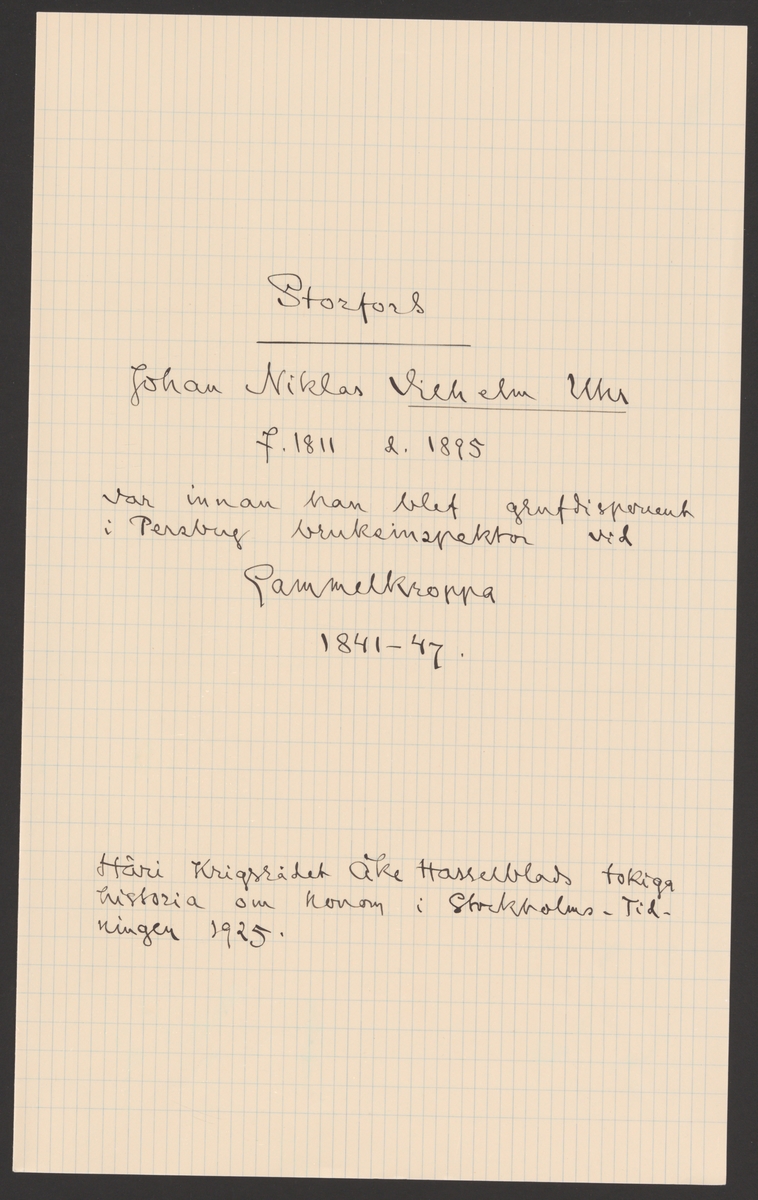 Storfors
Johan Niklas Vilhelm Uhr
f. 1811 d. 1895
var innan han blef grufdisponent
i Persbug bruksinspektor vid
Gammelkroppa
1841-47.
Häri Krigsrådet Åke Hasselblads tokiga
historia om honom i Stockholms-Tid-
ningen 1925.